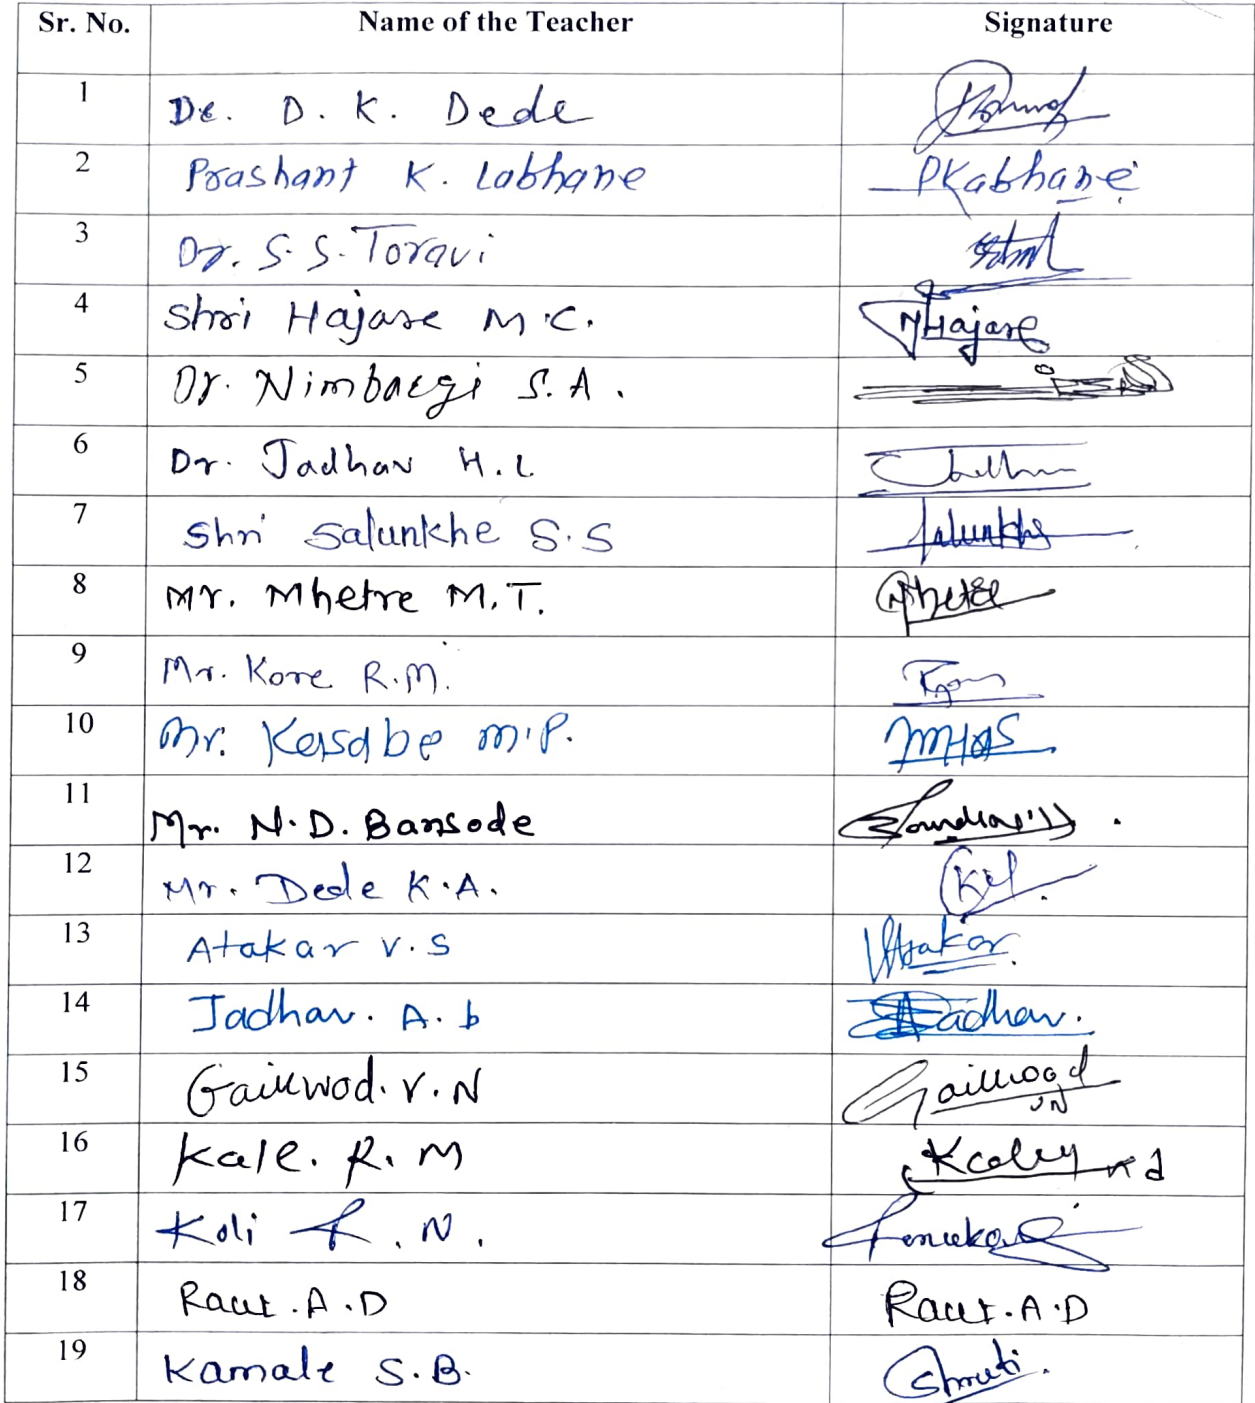 Sr. No. Name of the Teacher Signature
1 Dr. D. K. Dede
2 Prashant K. Labhane PKabhane
3 Dr. S. S. Toravi
4 Shri Hajare M.C. Hajare
5 Dr. Nimbargi S. A.
6 Dr. Jadhav H. L
7 Shri Salunkhe S. S Salunkhe
8 Mr. Mhetre M. T. Mhetre
9 Mr. Kore R.M.
10 Mr. Kasabe M.P.
11 Mr. N. D. Bansode
12 Mr. Dede K.A.
13 Atakar V. S Atakar
14 Jadhav. A. b Jadhav.
15 Gaikwad. V. N Gaikwad VN
16 Kale. R. M
17 Koli R. N. Renuka
18 Raut . A . D Raut . A . D
19 Kamale S. B. Shruti.